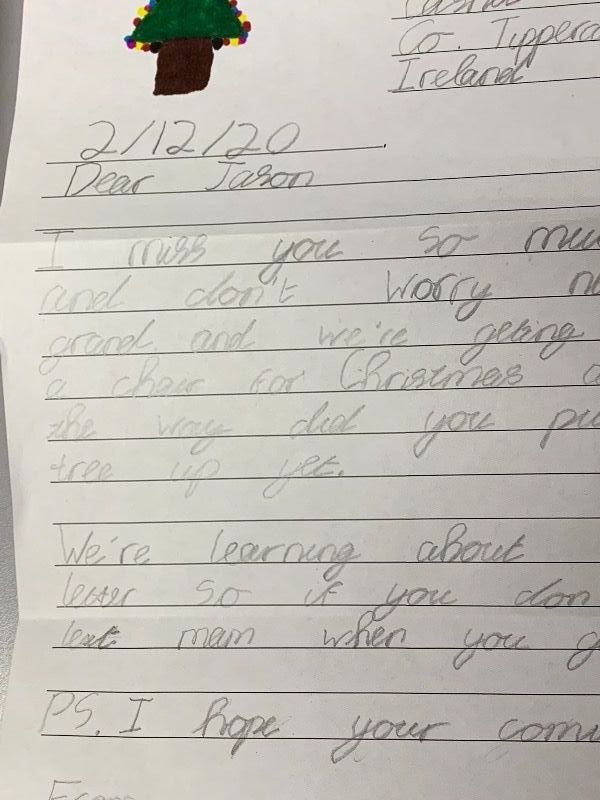 Co. Tippera
Ireland
2/12/20
Dear Jason
I miss you so mu
and don't worry
grand and we're geting
a chair for Christmas
the way did you pu
tree up yet.
We're learning about
letter so if you don
text mam when you g
PS. I hope your com
From